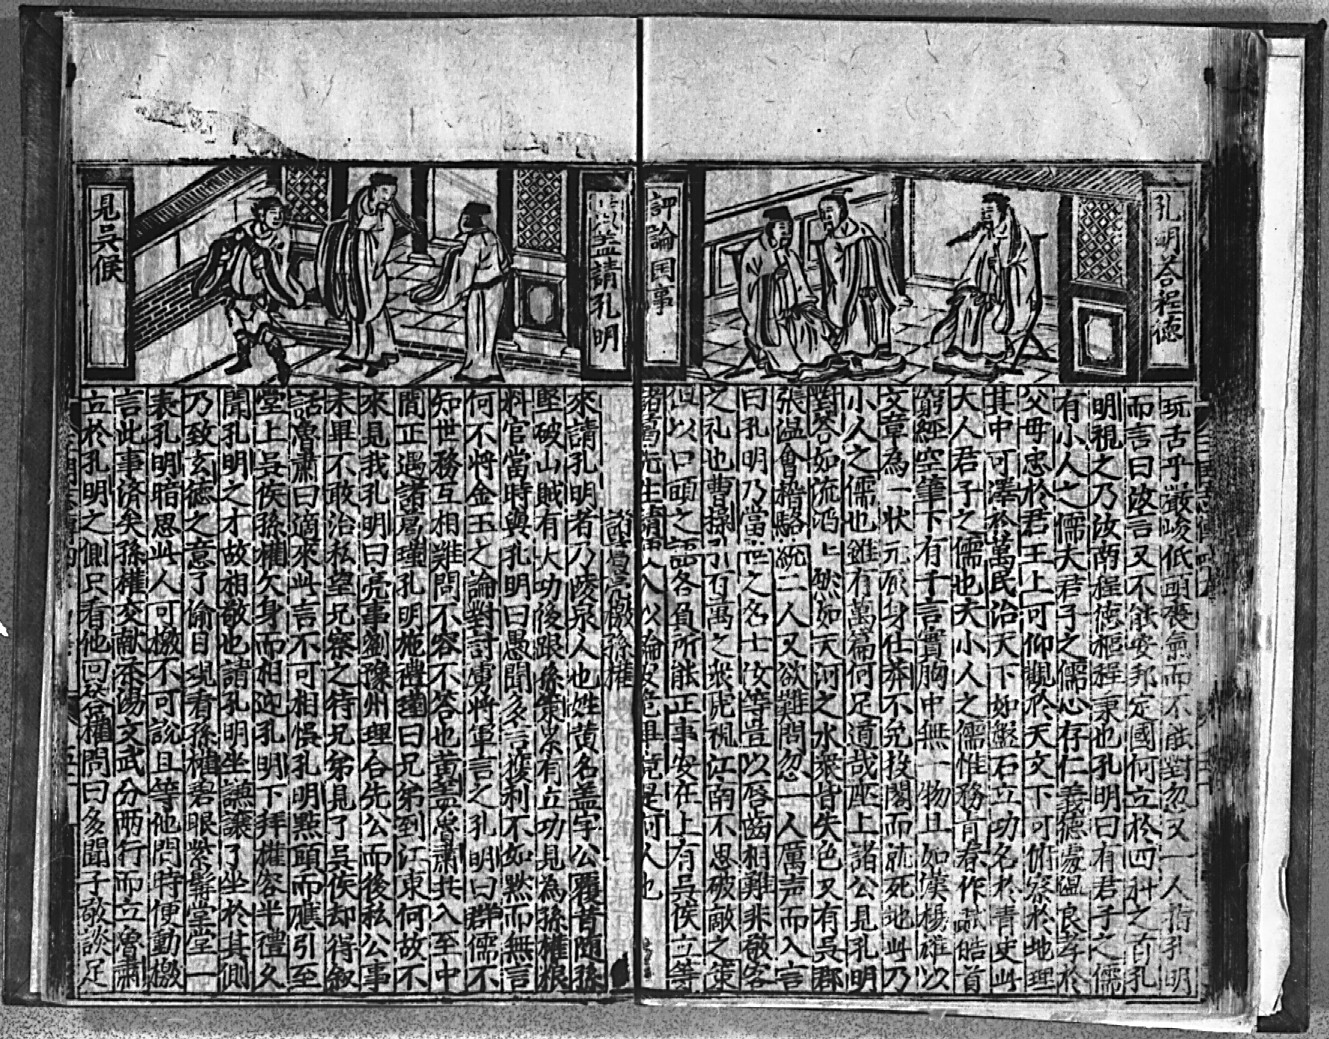 孔明荅程德
評論国事
玩舌乎嚴峻低頭喪氣而不能對忽又一人指孔明
而言曰汝言又不能安邦定國何立於四科之首孔
明視之乃汝南程德樞程秉也孔明曰有君子之儒
有小人之儒夫君子之儒心存仁義德處温良孝於
父母忠於君王上可仰觀於天文下可俯察於地理
其中可澤於萬民治天下如盤石立功名於青史此
大人君子之儒也夫小人之儒惟務青春作賦皓首
窮經空筆下有千言實胸中無一物且如漢楊雄以
文章為一状元而身仕莽不免投閣而就死地此乃
小人之儒也雖有萬篇何足道哉座上諸公見孔明
對答如流滔上然如天河之水衆皆失色又有吳郡
張温會稽駱統二人又欲難問忽一人厲声而入言
曰孔明乃當世之名士汝等豈以唇齒相難非敬客
之礼也曹操引百萬之衆虎視江南不思破敵之策
似以口頭之言各負所能正事安在上有吳侯立等
諸葛先生請入以論安危且竟是何人也
諸葛亮激孫權
盖請孔明
見吳候
來請孔明者乃陵泉人也姓黄名盖字公覆昔随孫
堅破山賊有大功後跟孫策累有立功見為孫權粮
料官當時與孔明曰愚聞多言獲利不如黙而無言
何不將金玉之論對討虜將軍言之孔明曰群儒不
知世務互相難問不容不答也黄盖魯肅共入至中
間正遇諸葛瑾孔明施禮瑾曰兄弟到江東何故不
來見我孔明曰亮事劉豫州理合先公而後私公事
未畢不敢治私望兄察之待兄弟見了吳侯却得叙
話魯肅曰適來此言不可相悞孔明點頭而應引至
堂上吳侯孫權欠身而相迎孔明下拜權答半禮久
聞孔明之才故相敬也請孔明坐謙讓了坐於其側
乃致玄德之意了偷目覷看孫權碧眼紫髯堂堂一
表孔明暗思此人可激不可說且等他問時便動激
言此事济矣孫權交獻茶湯文武分两行而立魯肅
立於孔明之側只看他回答權問曰多聞子敬談足